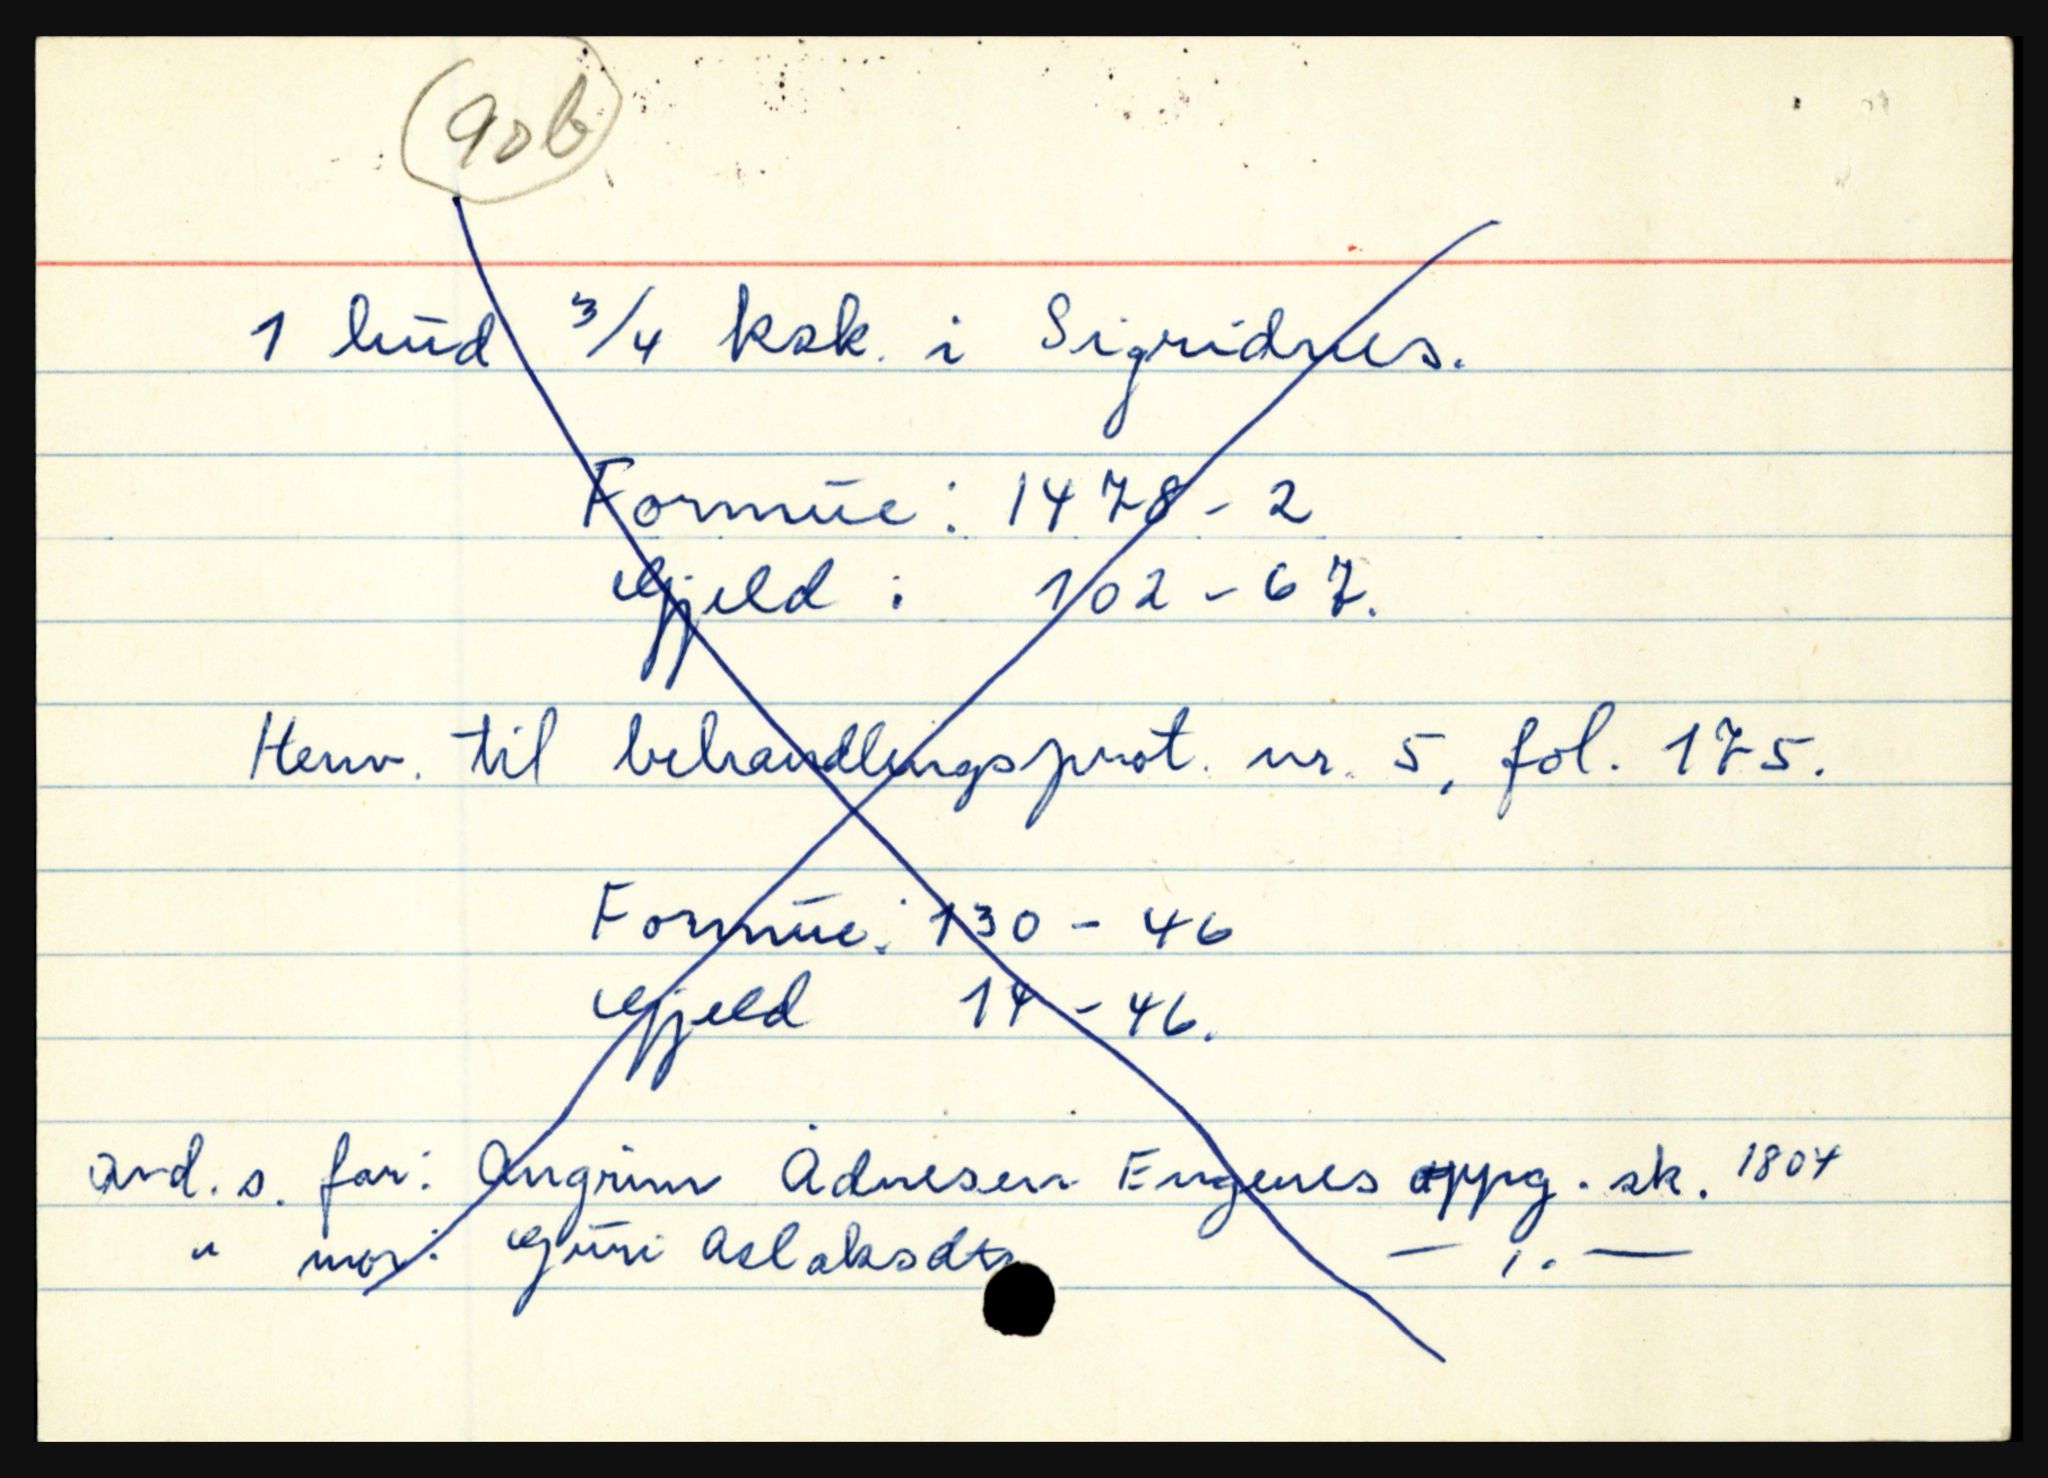 90b
1 hud 3/4 ksk. i Sigridnes.
Formue: 1478 - 2
Gjeld : 102 - 67.
Henv. til behandlingsprot. nr. 5, fol. 175.
Formue: 130 - 46
Gjeld 14 - 46.
avd. s. far: Angrim Ådnesen Engenes oppg. sk. 1804
" mor: Guri Aslaksdtr — ,. —